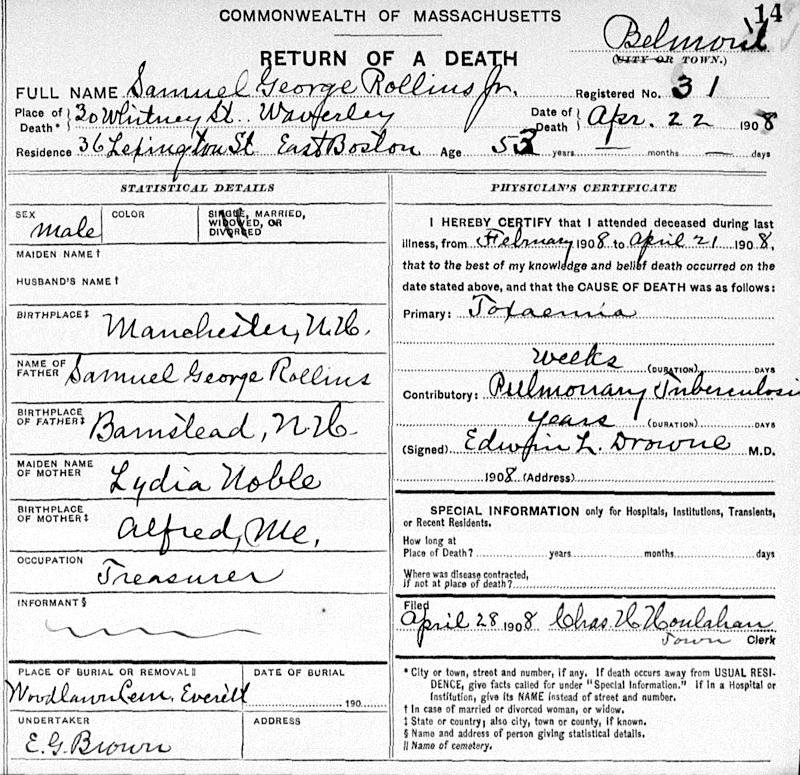 14
COMMONWEALTH OF MASSACHUSETTS
Belmont
RETURN OF A DEATH
(CITY OR TOWN.)
FULL NAME Samuel George Rollins Jr.
Registered No. 31
Place of Death* } 30 Whitney St. Waverley
Date of Death } Apr. 22 1908
Residence 36 Lexington St East Boston Age 53 years — months — days
STATISTICAL DETAILS
SEX
male
COLOR
SINGLE, MARRIED,
WIDOWED, OR
DIVORCED
MAIDEN NAME †
HUSBAND'S NAME †
BIRTHPLACE ‡
Manchester, N.H.
NAME OF
FATHER Samuel George Rollins
BIRTHPLACE
OF FATHER ‡ Barnstead, N.H.
MAIDEN NAME
OF MOTHER Lydia Noble
BIRTHPLACE
OF MOTHER ‡ Alfred, Me.
OCCUPATION
Treasurer
INFORMANT §
PLACE OF BURIAL OR REMOVAL ||
Woodlawn Cem. Everett
DATE OF BURIAL
190
UNDERTAKER
E. G. Brown
ADDRESS
PHYSICIAN'S CERTIFICATE
I HEREBY CERTIFY that I attended deceased during last
illness, from February 1908 to April 21 1908,
that to the best of my knowledge and belief death occurred on the
date stated above, and that the CAUSE OF DEATH was as follows:
Primary: Toxaemia
weeks (DURATION) DAYS
Contributory: Pulmonary Tuberculosis
years (DURATION) DAYS
(Signed) Edwin L. Drowne M.D.
1908 (Address)
SPECIAL INFORMATION only for Hospitals, Institutions, Transients,
or Recent Residents.
How long at
Place of Death? years months days
Where was disease contracted,
if not at place of death?
Filed
April 28 1908 Chas. H Houlahan
Town Clerk
* City or town, street and number, if any. If death occurs away from USUAL RESI-
DENCE, give facts called for under "Special Information." If in a Hospital or
Institution, give its NAME instead of street and number.
† In case of married or divorced woman, or widow.
‡ State or country; also city, town or county, if known.
§ Name and address of person giving statistical details.
|| Name of cemetery.